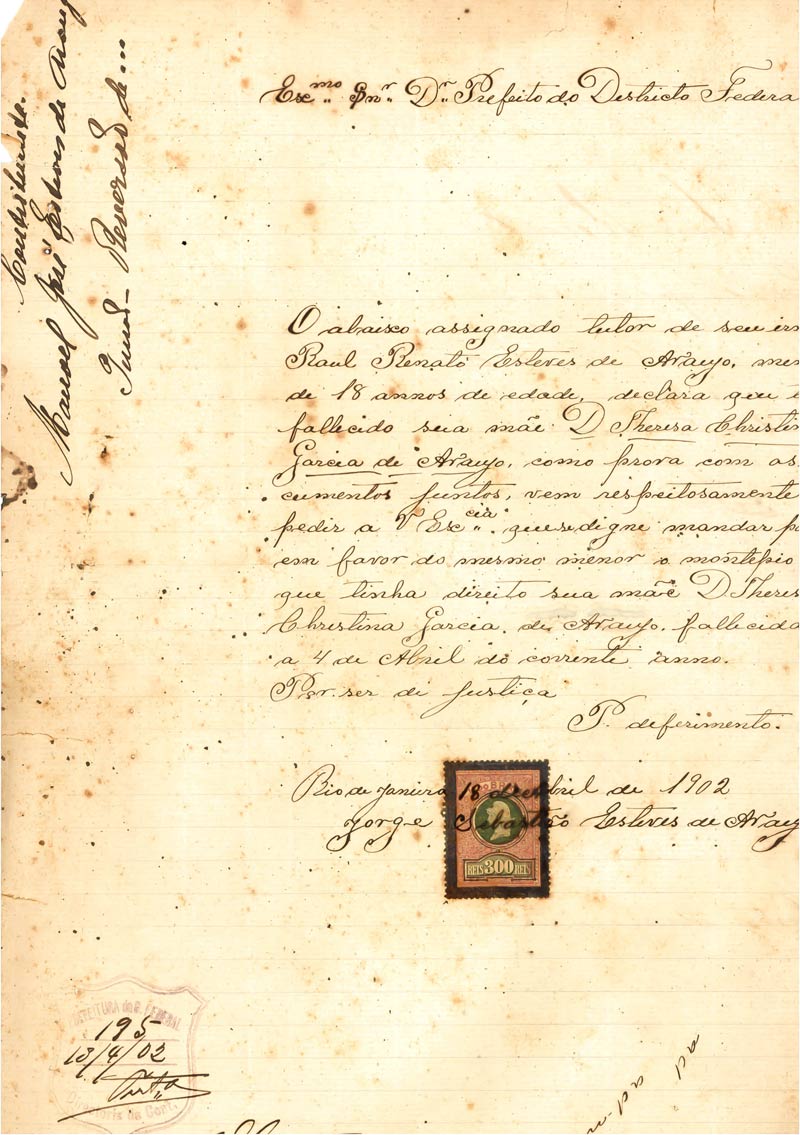 Exc.mo Snr. Dr. Prefeito do Districto Federa
Manoel José Esteves de Arauj
Reversão de...
O abaixo assignado tutor de seu ir
Raul Renato Esteves de Araujo, me
de 18 annos de edade, declara que
fallecido sua mãe D Theresa Christin
Garcia de Araujo, como prova com os
cumentos juntos, vem respeitosamente
pedir a V Exc.cia que se digne mandar p
em favor do mesmo menor o montepio
que tinha direito sua mãe D Theres
Christina Garcia de Araujo, fallecida
a 4 de Abril do corrente anno.
Por ser de justiça
P. deferimento.
Rio de Janeiro 18 de Abril de 1902
Jorge Sebastião Esteves de Arauj
REIS 300 REIS
PREFEITURA do D. FEDERAL
195
/4/02
Directoria de Cont.